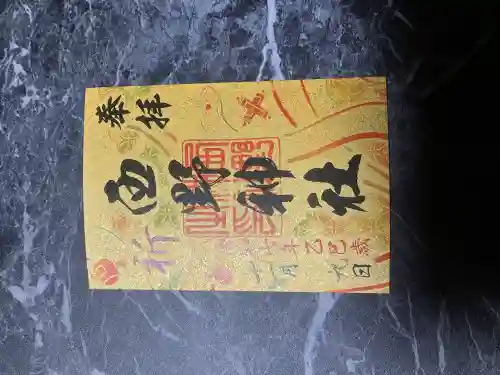 奉拝
西野神社
祈
令和七年乙巳歳
十一月 九日